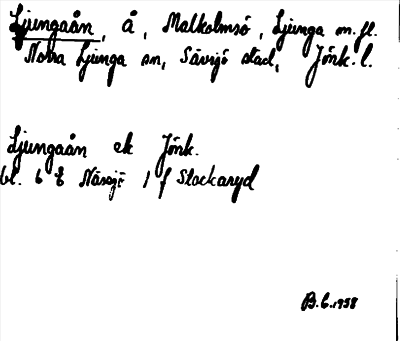 Ljungaån, å, Malkolmsö, Ljunga m.fl.
Norra Ljunga sn, Sävsjö stad, Jönk. l.
Ljungaån ek Jönk.
bl. 6 Nässjö 1 f Stockaryd
B.E. 1958